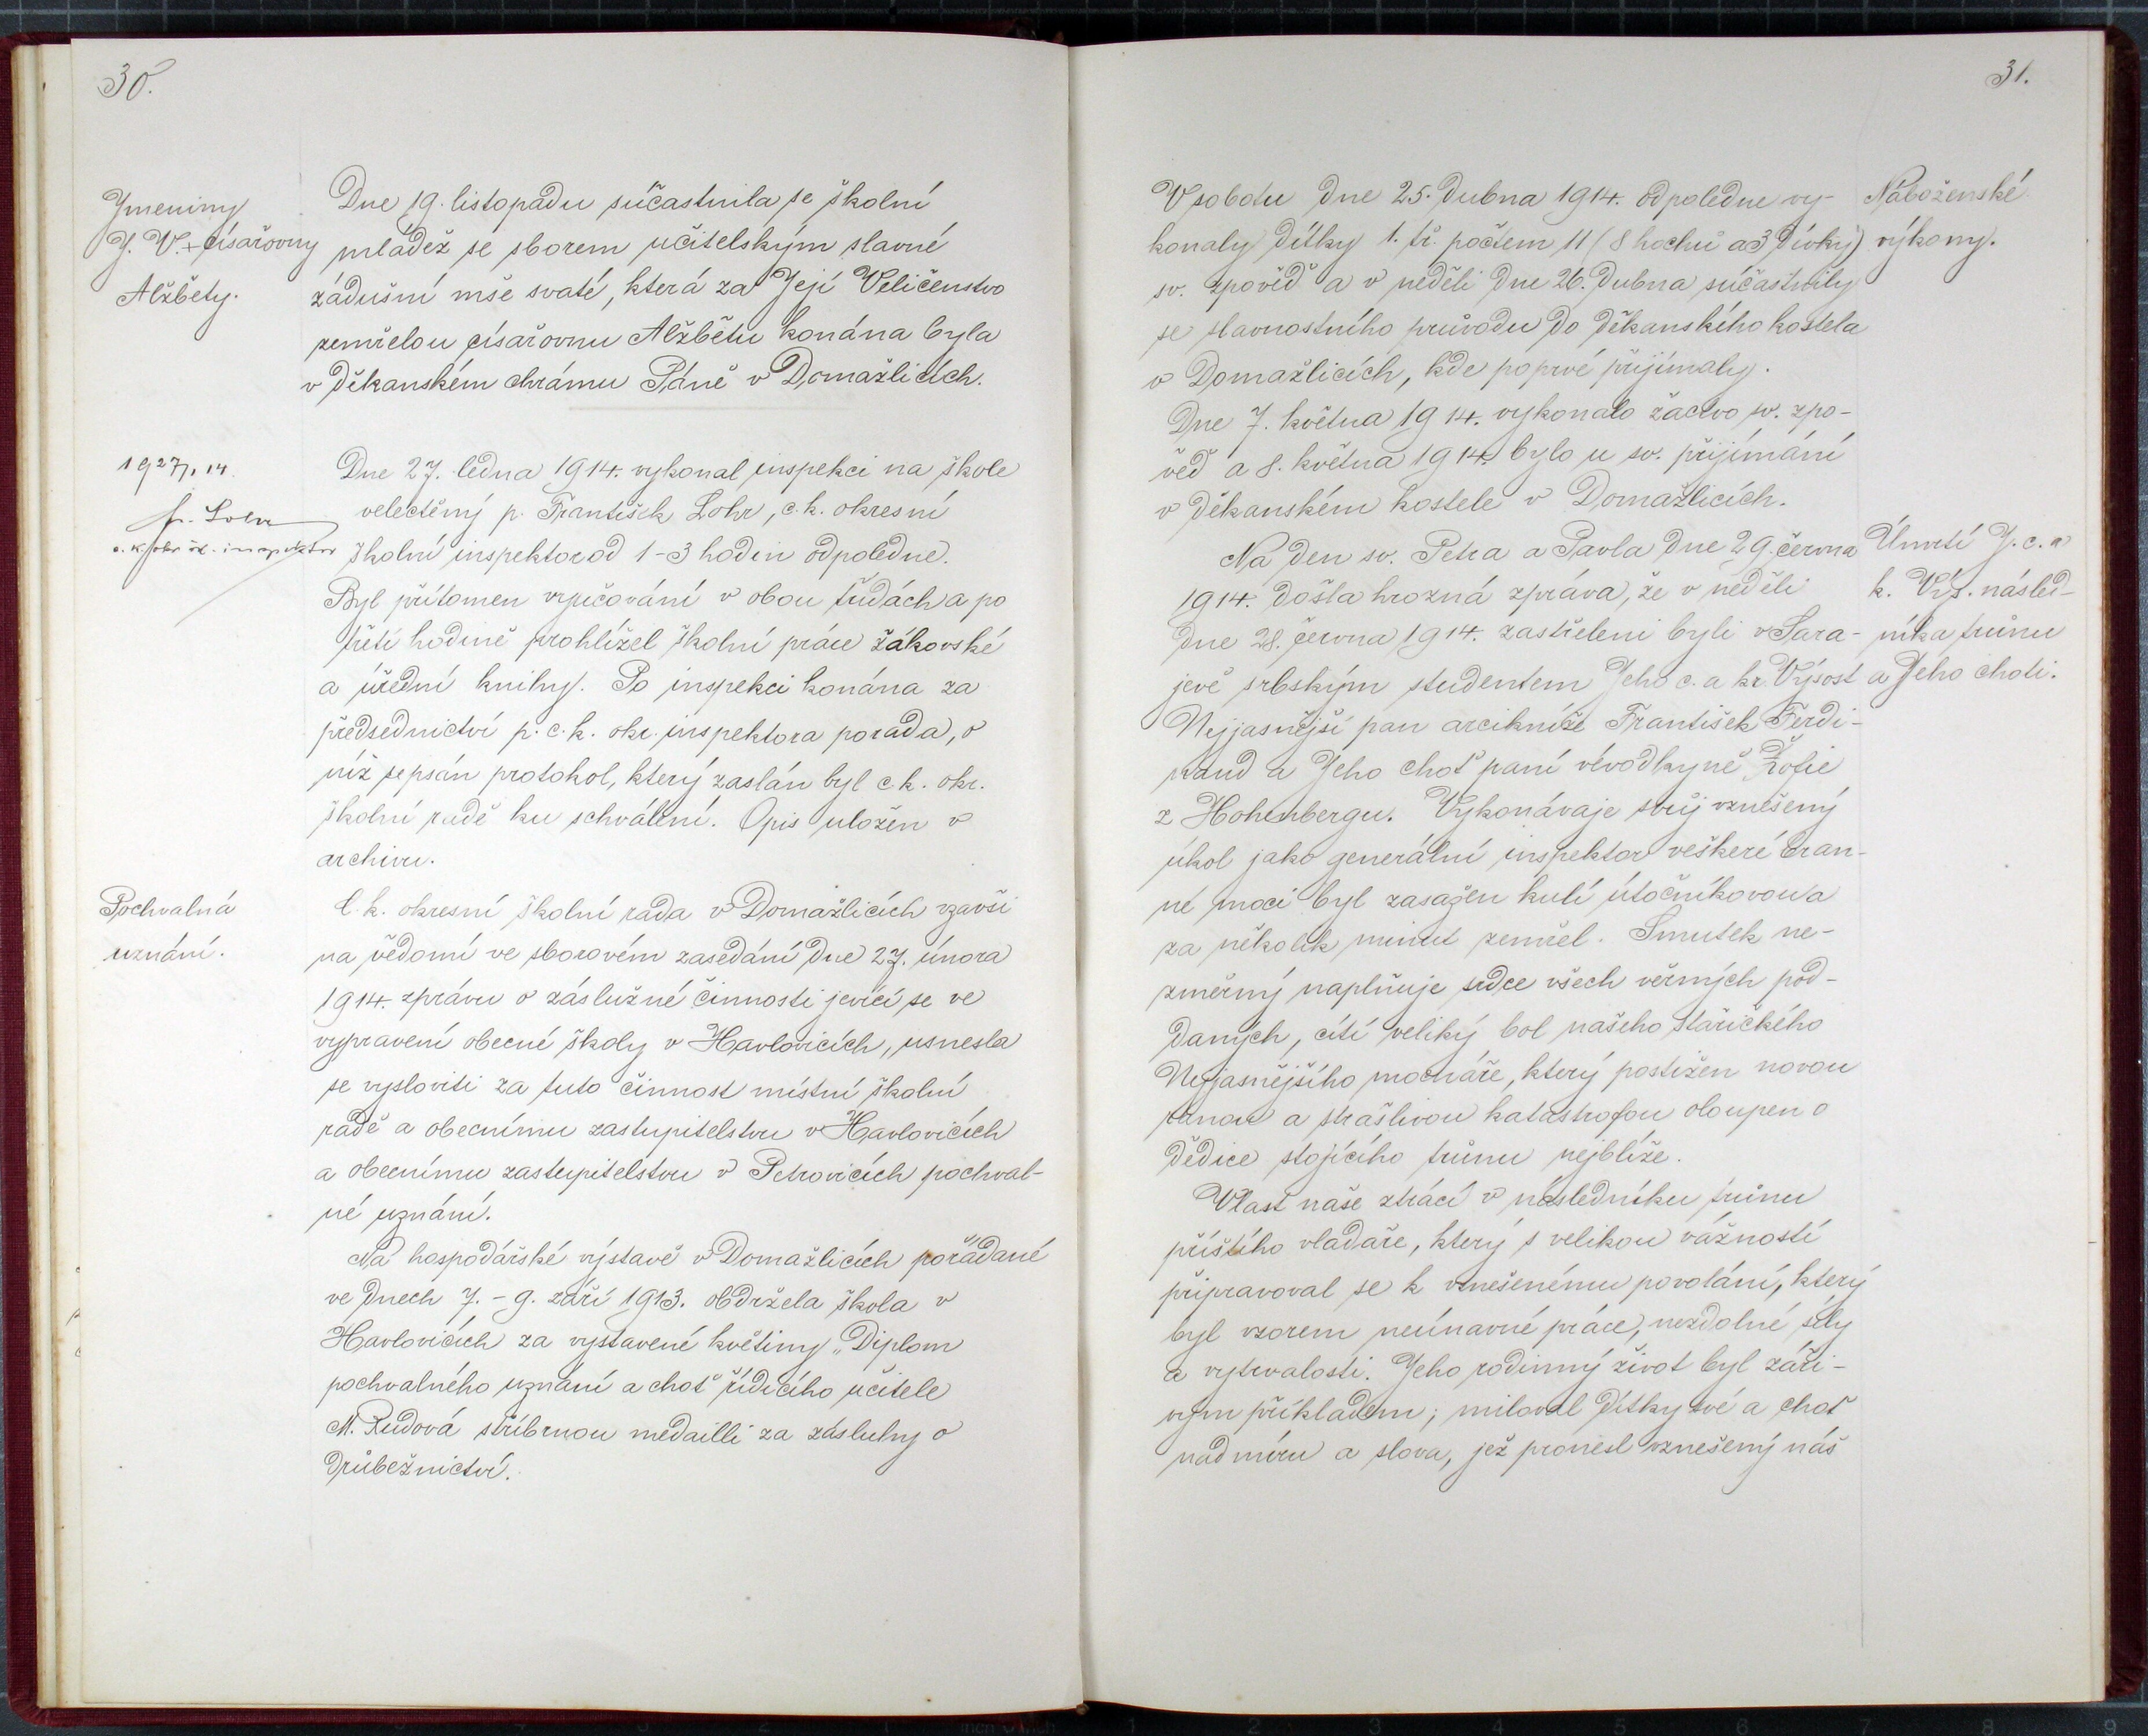 30.
Jmeniny
J. V. + císařovny
Alžběty.
Dne 19. listopadu súčastnila se školní
mládež se sborem učitelským slavné
zádušní mše svaté, která za Její Veličenstvo
zemřelou císařovnu Alžbětu konána byla
v děkanském chrámu Páně v Domažlicích.
1927/1 14.
fr. Lohr
c. k. okr. šk. inspektor
Dne 27. ledna 1914. vykonal inspekci na škole
velectěný p. František Lohr, c. k. okresní
školní inspektor od 1-3 hodin odpoledne.
Byl přítomen vyučování v obou třídách a po
třetí hodině prohlížel školní práce žákovské
a úřední knihy. Po inspekci konána za
předsednictví p. c. k. okr. inspektora porada, o
níž sepsán protokol, který zaslán byl c k. okr.
školní radě ku schválení. Opis uložen v
archivu.
Pochvalná
uznání.
C. k. okresní školní rada v Domažlicích vzavši
na vědomí ve sborovém zasedání dne 27. února
1914. zprávu o záslužné činnosti jevící se ve
vypravení obecné školy v Havlovicích, usnesla
se vysloviti za tuto činnost místní školní
radě a obecnímu zastupitelstvu v Havlovicích
a obecnímu zastupitelstvu v Petrovicích pochval-
né uznání.
Na hospodářské výstavě v Domažlicích pořádané
ve dnech 7. - 9. září 1913. obdržela škola v
Havlovicích za vystavené květiny „Diplom
pochvalného uznání a choť řídícího učitele
M. Rudová stříbrnou medailli za zásluhy o
drůbežnictví.
31.
V sobotu dne 25. dubna 1914. odpoledne vy-
konaly dítky 1. tř. počtem 11 (8 hochů a 3 dívky)
sv. zpověď a v neděli dne 26. dubna súčastnily
se slavnostního průvodu do děkanského kostela
v Domažlicích, kde poprvé přijímaly.
Dne 7. května 1914. vykonalo žactvo sv. zpo-
věď a 8. května 1914. bylo u sv. přijímání
v děkanském kostele v Domažlicích.
Náboženské
výkony.
Na den sv. Petra a Pavla dne 29. června
1914. došla hrozná zpráva, že v neděli
dne 28. června 1914. zastřeleni byli v Sara-
jevě srbským studentem Jeho c. a kr. Výsost
Nejjasnější pan arcikníže František Ferdi-
nand a Jeho choť paní vévodkyně Žofie
z Hohenbergu. Vykonávaje svůj vznešený
úkol jako generální inspektor veškeré bran-
né moci byl zasažen kulí útočníkovou a
za několik minut zemřel. Smutek ne-
změrný naplňuje srdce všech věrných pod-
daných, cítí veliký bol našeho stařičkého
Nejjasnějšího mocnáře, který postižen novou
ranou a strašlivou katastrofou oloupen o
dědice stojícího trůnu nejblíže.
Úmrtí J. c. a
k. Výs. násled-
níka trůnu
a Jeho choti.
Vlast naše ztrácí v následníku trůnu
příštího vladaře, který s velikou vážností
připravoval se k vznešenému povolání, který
byl vzorem neúnavné práce, nezdolné síly
a vytrvalosti. Jeho rodinný život byl záři-
vým příkladem; miloval dítky své a choť
nadmíru a slova, jež pronesl vznešený náš